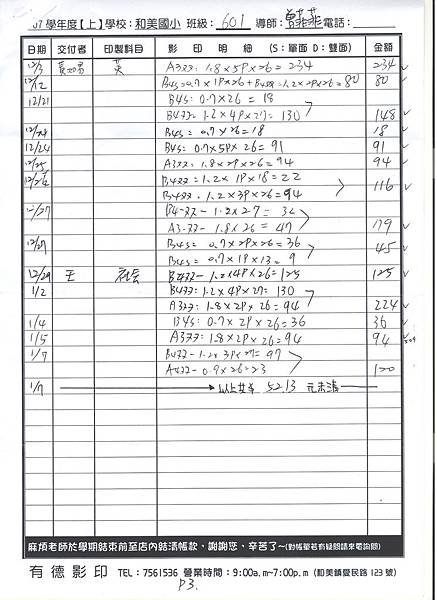 97 學年度【上】學校：和美國小 班級：601 導師：曾菲菲 電話：
日期 交付者 印製科目 影 印 明 細 (S：單面 D：雙面) 金額
12/3 英 A3双: 1.8×5P×26=234 234
12/12 B4S=0.7×1P×26+B4双=1.2×2P×26=80 80
12/21 B4S: 0.7×26=18
B4双: 1.2×4P×27=130 148
B4S= 0.7×26=18 18
12/24 B4S: 0.7×5P×26=91 91
12/25 A3双: 1.8×2P×26=94 94
12/26 B4双=1.2×1P×18=22
B4双: 1.2×3P×26=94 116
12/27 B4双- 1.2×27=32
A3双- 1.8×26=47 79
12/27 B4S= 0.7×2P×26=36
B4S= 0.7×1P×13=9 45
12/29 王 社会 B4双- 1.2×4P×26=125 125
1/2 B4双: 1.2×4P×27=130
A3双: 1.8×2P×26=94 224
1/4 B4S: 0.7×2P×26=36 36
1/5 A3双: 1.8×2P×26=94 94
1/7 B4双- 1.2×3P×27=97
A4双- 0.9×26=23 120
1/7 以上共 5213 元未清
麻煩老師於學期結束前至店內結清帳款，謝謝您，辛苦了~(對帳單若有疑問請來電詢問)
有德影印 TEL：7561536 營業時間：9:00a.m~7:00p.m (和美鎮愛民路 123 號)
P3.